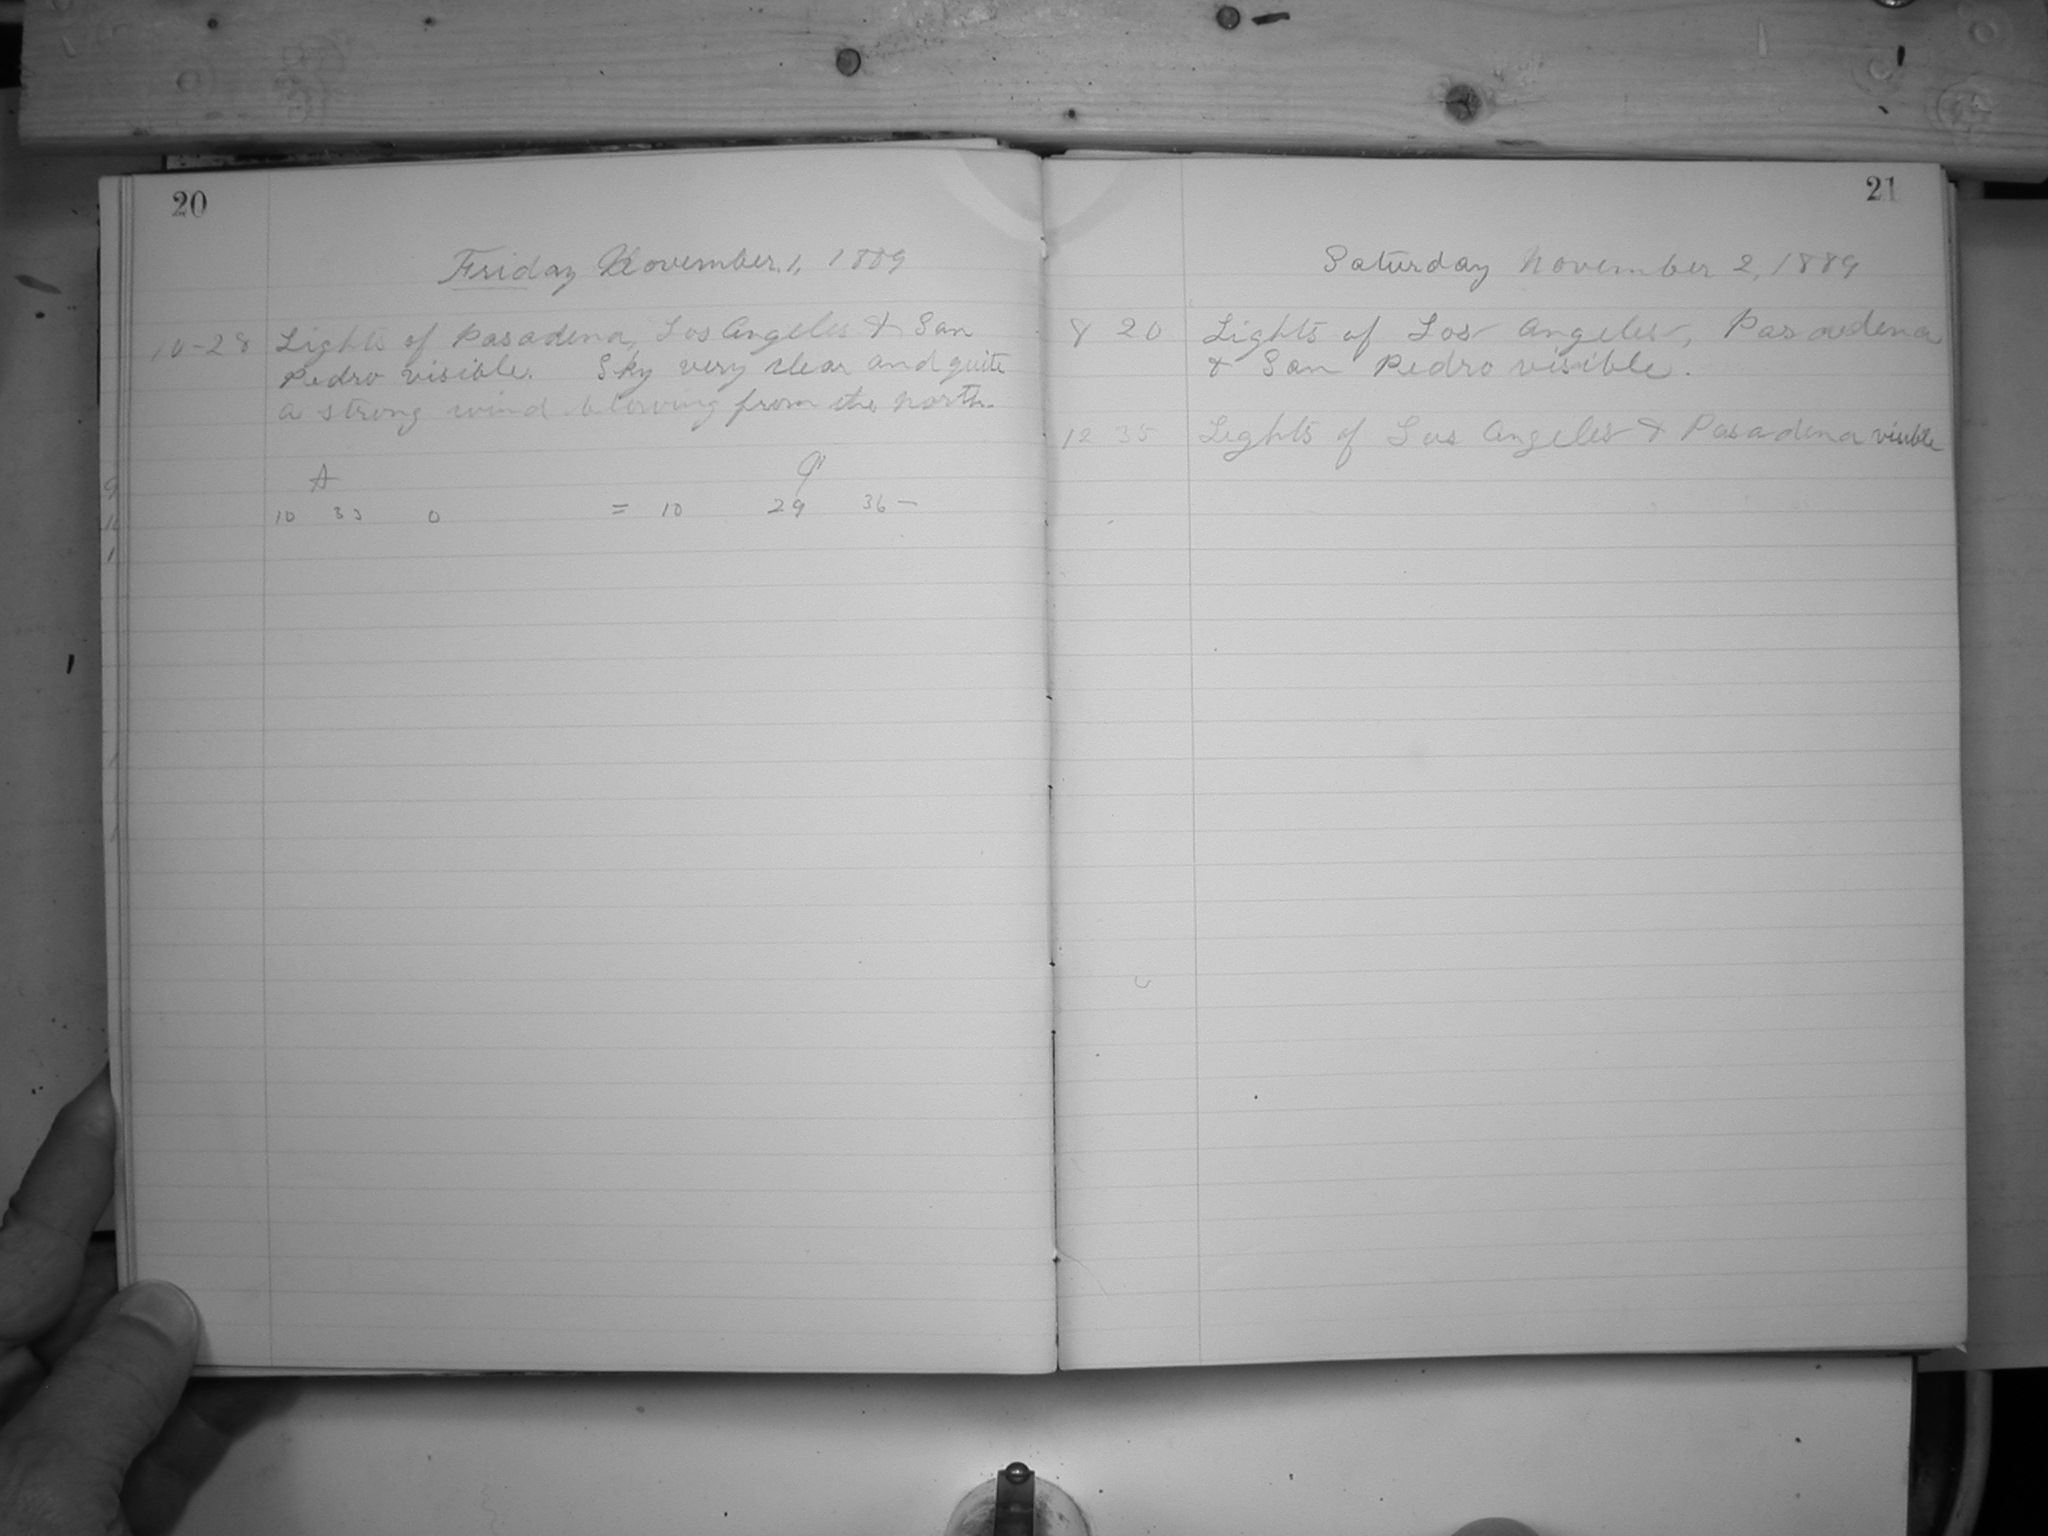 20
Friday November 1, 1889
10-28 Lights of Pasadena, Los Angeles & San
Pedro visible. Sky very clear and quite
a strong wind blowing from the north.
A
10 33 0 = 10 29 36 –
21
Saturday November 2, 1889
8 20 Lights of Los Angeles, Pasadena
& San Pedro visible.
12 35 Lights of Los Angeles & Pasadena visible